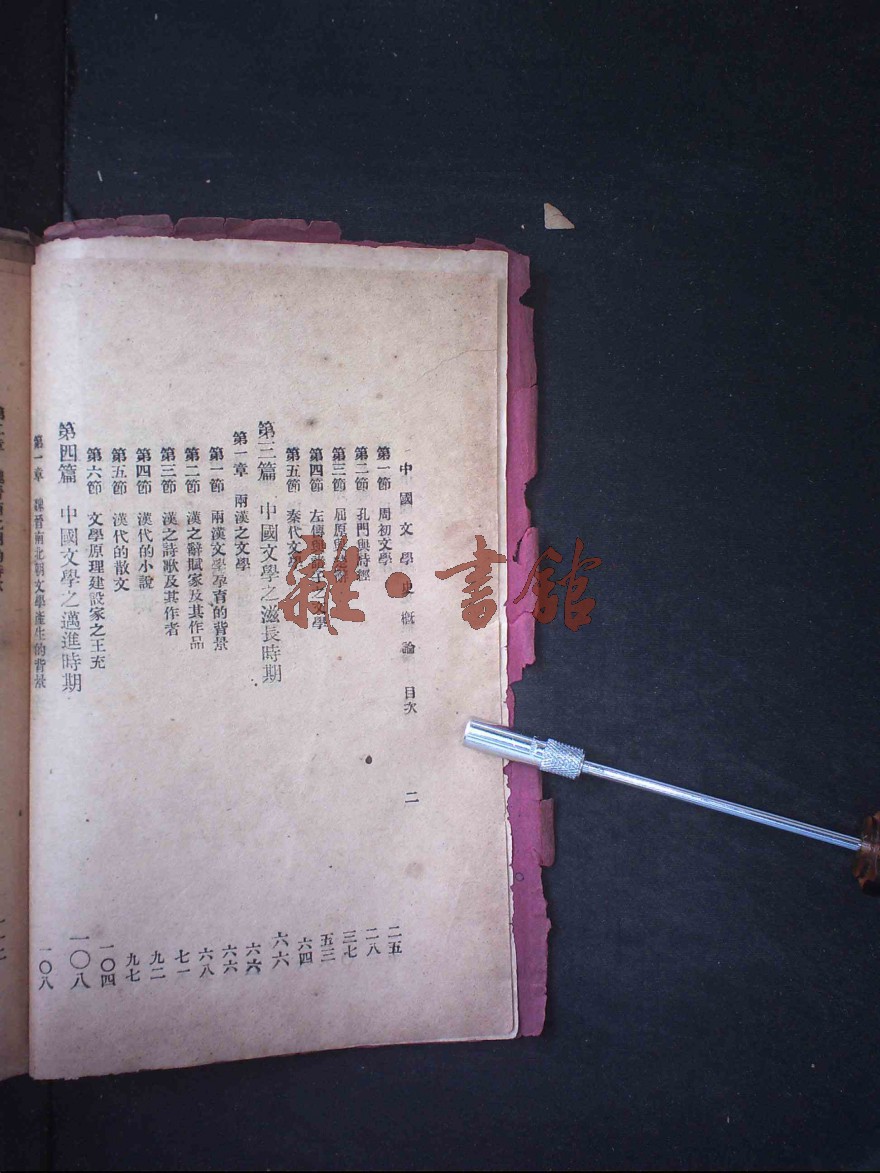 中國文學史概論 目次 二
第一節 周初文學 二五
第二節 孔門與詩經 二八
第三節 屈原與楚辭 三七
第四節 左傳與諸子之文學 五三
第五節 秦代文學 六四
第三篇 中國文學之滋長時期 六六
第一章 兩漢之文學 六六
第一節 兩漢文學孕育的背景 六六
第二節 漢之辭賦家及其作品 六八
第三節 漢之詩歌及其作者 七一
第四節 漢代的小說 九二
第五節 漢代的散文 九七
第六節 文學原理建設家之王充 一〇四
第四篇 中國文學之邁進時期 一〇八
第一章 魏晉南北朝文學產生的背景 一〇八
雜·書館